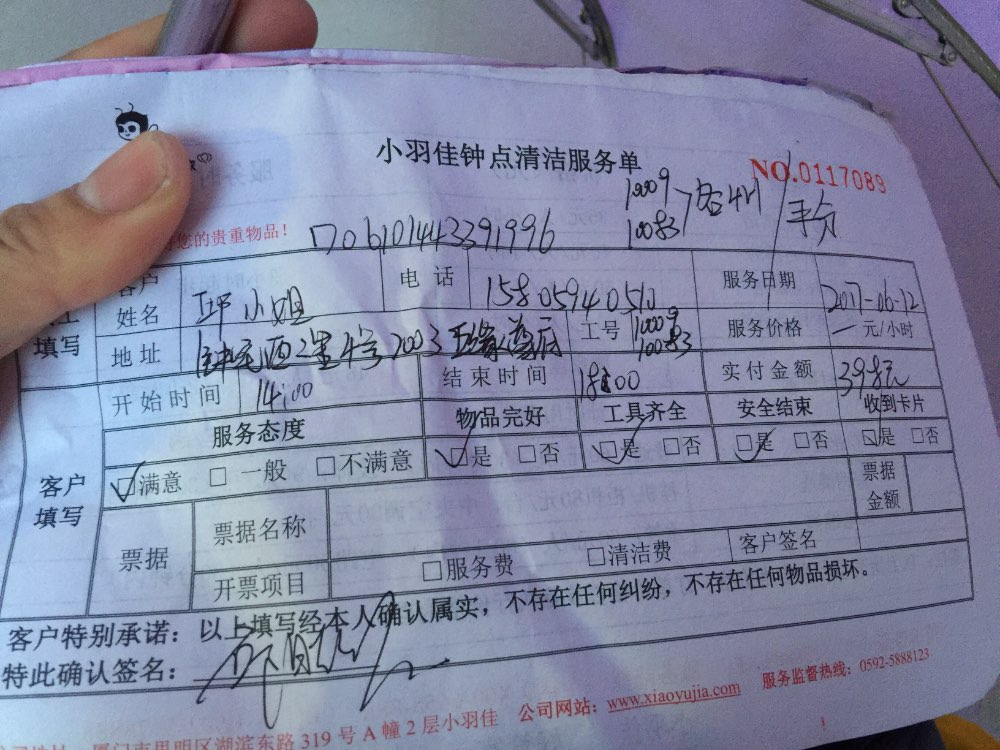 小羽佳钟点清洁服务单
NO.0117089
10009 10083 各4H 平分
您的贵重物品! 1706101443391996
客户姓名 邱小姐 电话 15805940510 服务日期 2017-06-12
填写 地址 2003 工号 10009 10083 服务价格 一 元/小时
开始时间 14:00 结束时间 18:00 实付金额 398元
服务态度 物品完好 工具齐全 安全结束 收到卡片
客户填写 ☑满意 □一般 □不满意 ☑是 □否 ☑是 □否 ☑是 □否 ☑是 □否
票据 票据名称 票据金额
开票项目 □服务费 □清洁费 客户签名
客户特别承诺:以上填写经本人确认属实,不存在任何纠纷,不存在任何物品损坏。
特此确认签名:
厦门市思明区湖滨东路 319 号 A 幢 2 层小羽佳 公司网站:www.xiaoyujia.com 服务监督热线:0592-5888123